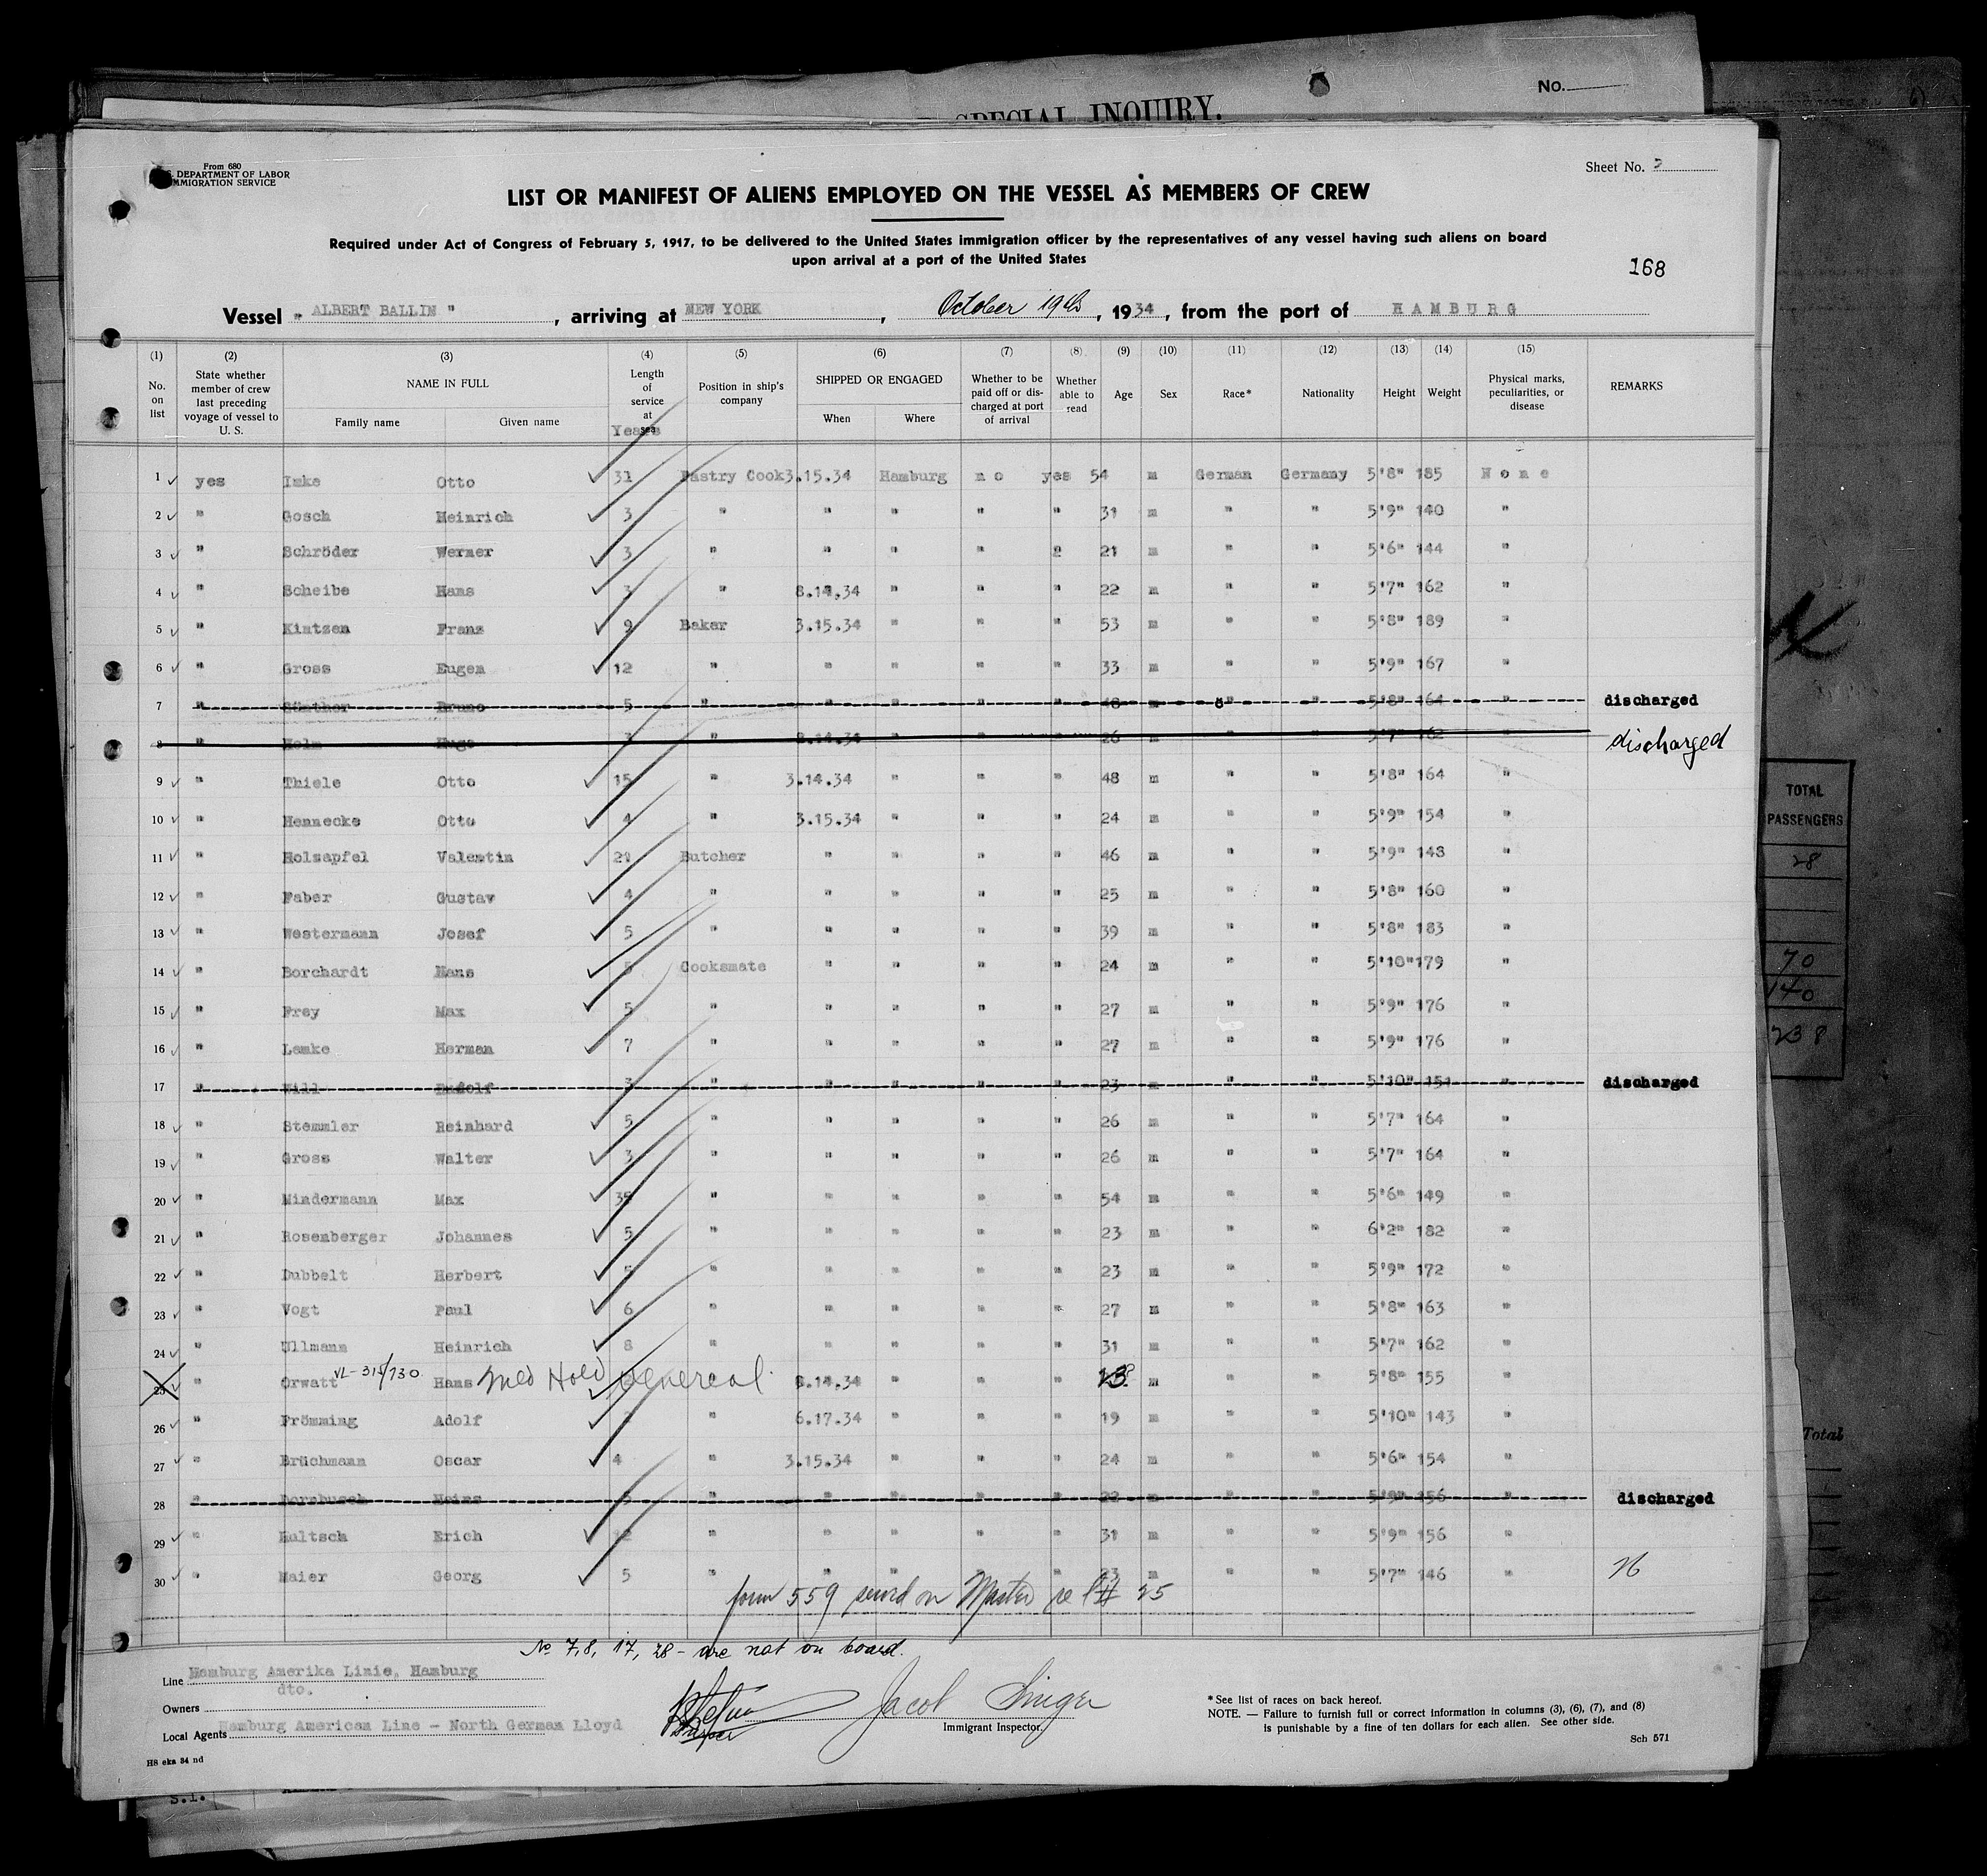 SPECIAL INQUIRY.
No.
From 680
DEPARTMENT OF LABOR
IMMIGRATION SERVICE
Sheet No. 2
LIST OR MANIFEST OF ALIENS EMPLOYED ON THE VESSEL AS MEMBERS OF CREW
Required under Act of Congress of February 5, 1917, to be delivered to the United States immigration officer by the representatives of any vessel having such aliens on board
upon arrival at a port of the United States
168
Vessel „ ALBERT BALLIN ", arriving at NEW YORK, October 19th, 1934, from the port of HAMBURG
(1) (2) (3) (4) (5) (6) (7) (8) (9) (10) (11) (12) (13) (14) (15)
No. on list State whether member of crew last preceding voyage of vessel to U. S. NAME IN FULL Family name Given name Length of service at sea Years Position in ship's company SHIPPED OR ENGAGED When Where Whether to be paid off or discharged at port of arrival Whether able to read Age Sex Race* Nationality Height Weight Physical marks, peculiarities, or disease REMARKS
1 yes Imke Otto 31 Pastry Cook 3.15.34 Hamburg no yes 54 m German Germany 5'8" 185 None
2 " Gosch Heinrich 3 " " " " " 31 m " " 5'9" 140 "
3 " Schröder Werner 3 " " " " " 21 m " " 5'6" 144 "
4 " Scheibe Hans 3 " 8.14.34 " " " 22 m " " 5'7" 162 "
5 " Kintzen Franz 9 Baker 3.15.34 " " " 53 m " " 5'8" 189 "
6 " Gross Eugen 12 " " " " " 33 m " " 5'9" 167 "
7 " Günther Bruno 5 " " " " " 48 m " " 5'8" 164 " discharged
8 " Holm Hugo 3 " 8.14.34 " " " 26 m " " 5'7" 162 " discharged
9 " Thiele Otto 15 " 3.14.34 " " " 48 m " " 5'8" 164 "
10 " Hennecke Otto 4 " 3.15.34 " " " 24 m " " 5'9" 154 "
11 " Holzapfel Valentin 21 Butcher " " " " 46 m " " 5'9" 148 "
12 " Faber Gustav 4 " " " " " 25 m " " 5'8" 160 "
13 " Westermann Josef 5 " " " " 39 m " " 5'8" 183 "
14 " Borchardt Hans 5 Cooksmate " " " " 24 m " " 5'10" 179 "
15 " Frey Max 5 " " " " " 27 m " " 5'9" 176 "
16 " Lemke Herman 7 " " " " " 27 m " " 5'9" 176 "
17 " Will Rudolf 3 " " " " " 23 m " " 5'10" 151 " discharged
18 " Stemmler Reinhard 5 " " " " " 26 m " " 5'7" 164 "
19 " Gross Walter 3 " " " " " 26 m " " 5'7" 164 "
20 " Mindermann Max 35 " " " " " 54 m " " 5'6" 149 "
21 " Rosenberger Johannes 5 " " " " " 23 m " " 6'2" 182 "
22 " Dubbelt Herbert 5 " " " " " 23 m " " 5'9" 172 "
23 " Vogt Paul 6 " " " " " 27 m " " 5'8" 163 "
24 " Ullmann Heinrich 8 " " " " " 31 m " " 5'7" 162 "
25 " Orwatt VL-315/730 Hans Med Hold venereal 8.14.34 " " " 23 m " " 5'8" 155 "
26 " Frömming Adolf 2 " 6.17.34 " " " 19 m " " 5'10" 143 "
27 " Brüchmann Oscar 4 " 3.15.34 " " " 24 m " " 5'6" 154 "
28 " Dornbusch Heinz 5 " " " " " 22 m " " 5'9" 156 " discharged
29 " Hultsch Erich 12 " " " " " 31 m " " 5'9" 156 "
30 " Maier Georg 5 " " " " " 23 m " " 5'7" 146 " 26
form 559 served on Master re l# 25
No 7, 8, 17, 28 - are not on board.
Line Hamburg Amerika Linie, Hamburg
Owners dto.
Local Agents Hamburg American Line - North German Lloyd
Jacob Singer
Immigrant Inspector.
*See list of races on back hereof.
NOTE. — Failure to furnish full or correct information in columns (3), (6), (7), and (8)
is punishable by a fine of ten dollars for each alien. See other side.
HS eka 34 nd
Sch 571
TOTAL
PASSENGERS
28
70
140
238
Total
S.I.